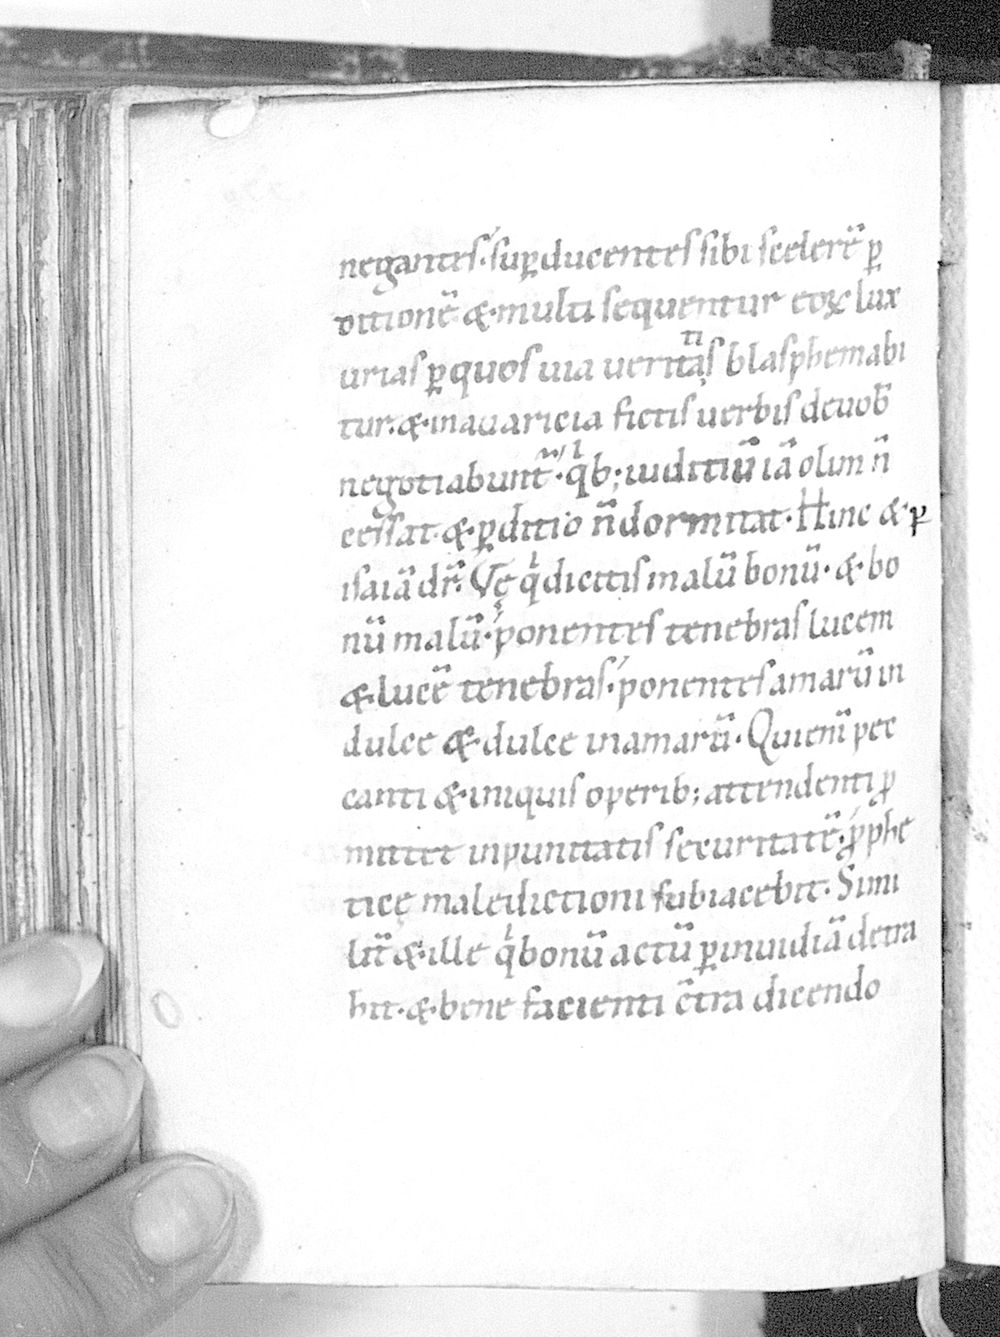 negantes. suꝑducentes sibi scelerẽ ꝑ
ditionẽ & multi sequentur eoꝝ lux
urias ꝑ quos uia ueritatis blasphemabi
tur. & in auaricia fictis uerbis de uob̃
negotiabunt᷑. qͥb; iuditiũ iã olim ñ
cessat. & ꝑditio ñ dormitat. Hinc & ꝑ
isaiã dr̃. Vę qͥ dicitis malũ bonũ. & bo
nũ malũ. ponentes tenebras lucem
& lucẽ tenebras. ponentes amarũ in
dulce & dulce in amarũ. Qui enim̃ pec
canti & iniquis operib; attendenti ꝓ
mittet inpunitatis securitatẽ. ꝓphe
ticę maledictioni subiacebit. Simi
lit̃ & ille qͥ bonũ actũ ꝑ inuidiã detra
hit. & bene facienti c̃tra dicendo